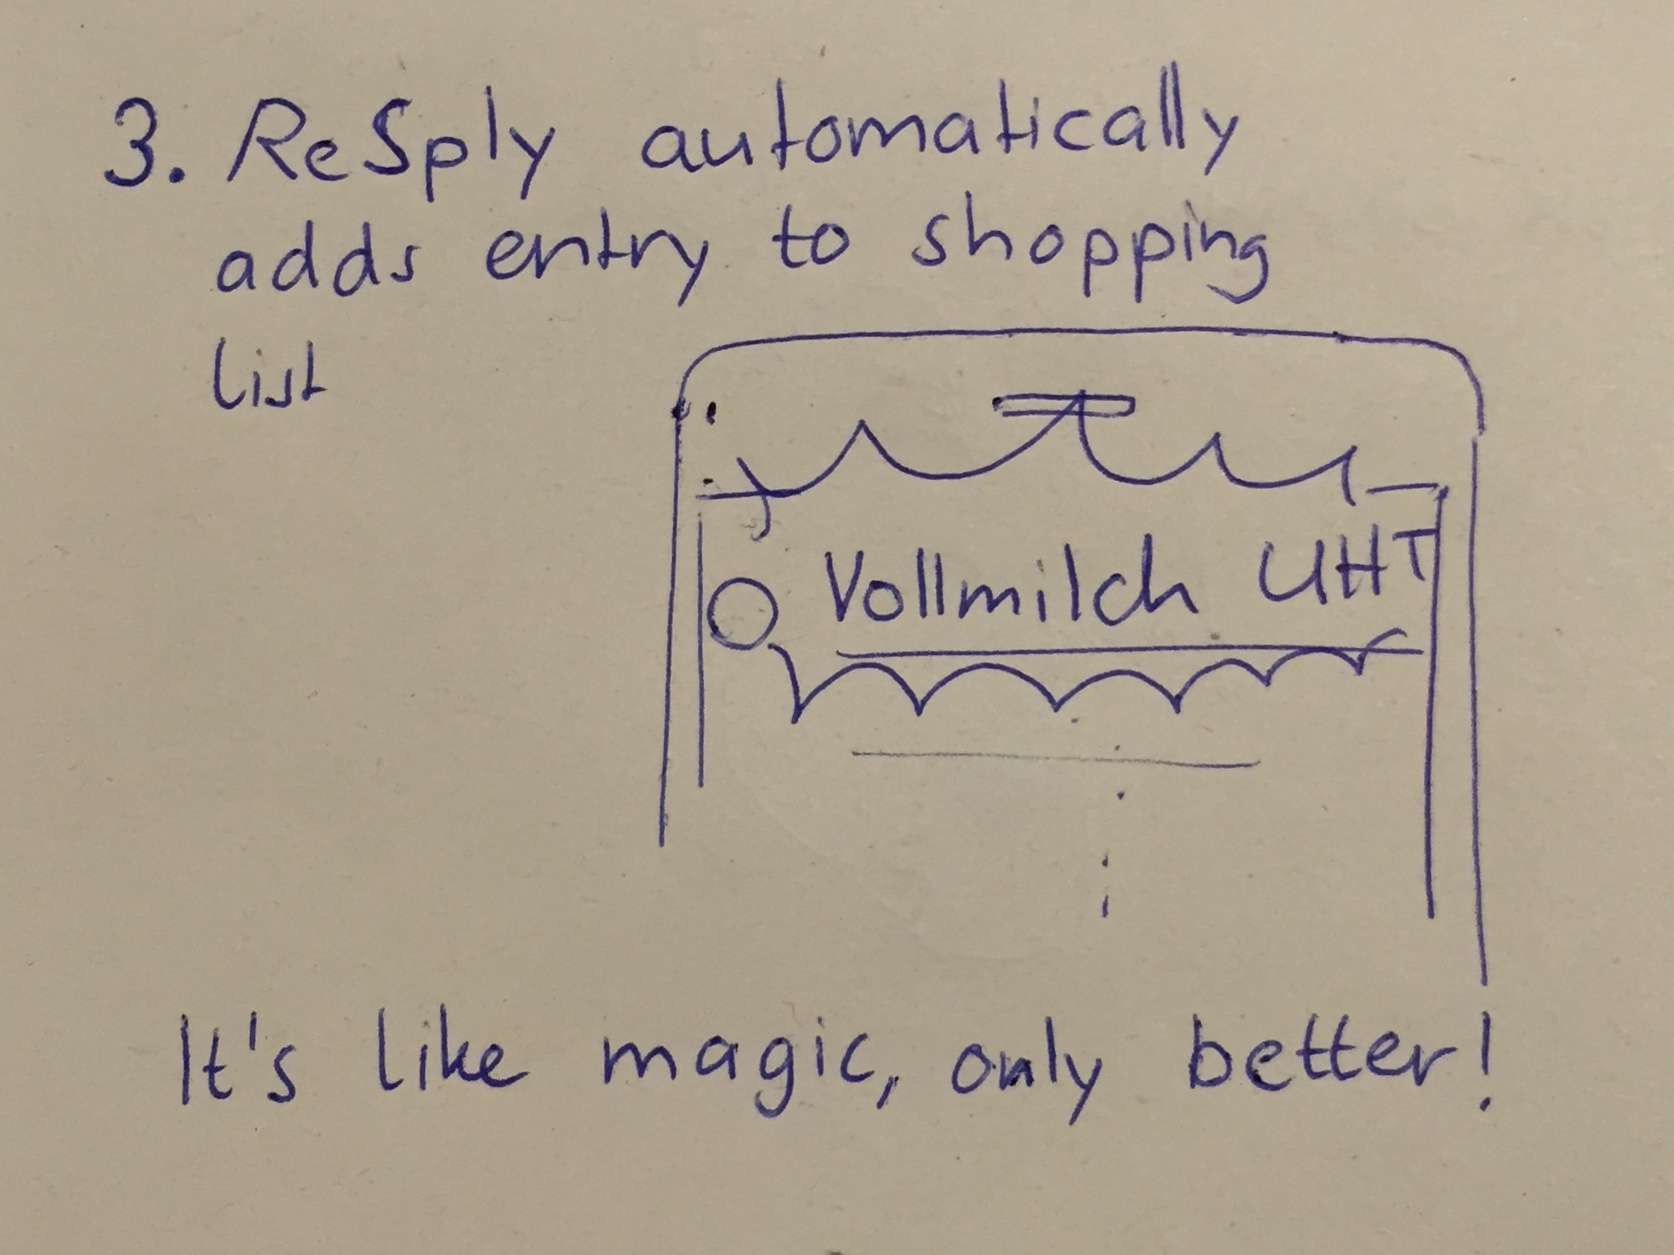 3. ReSply automatically
adds entry to shopping
list
Vollmilch UHT
It's like magic, only better!